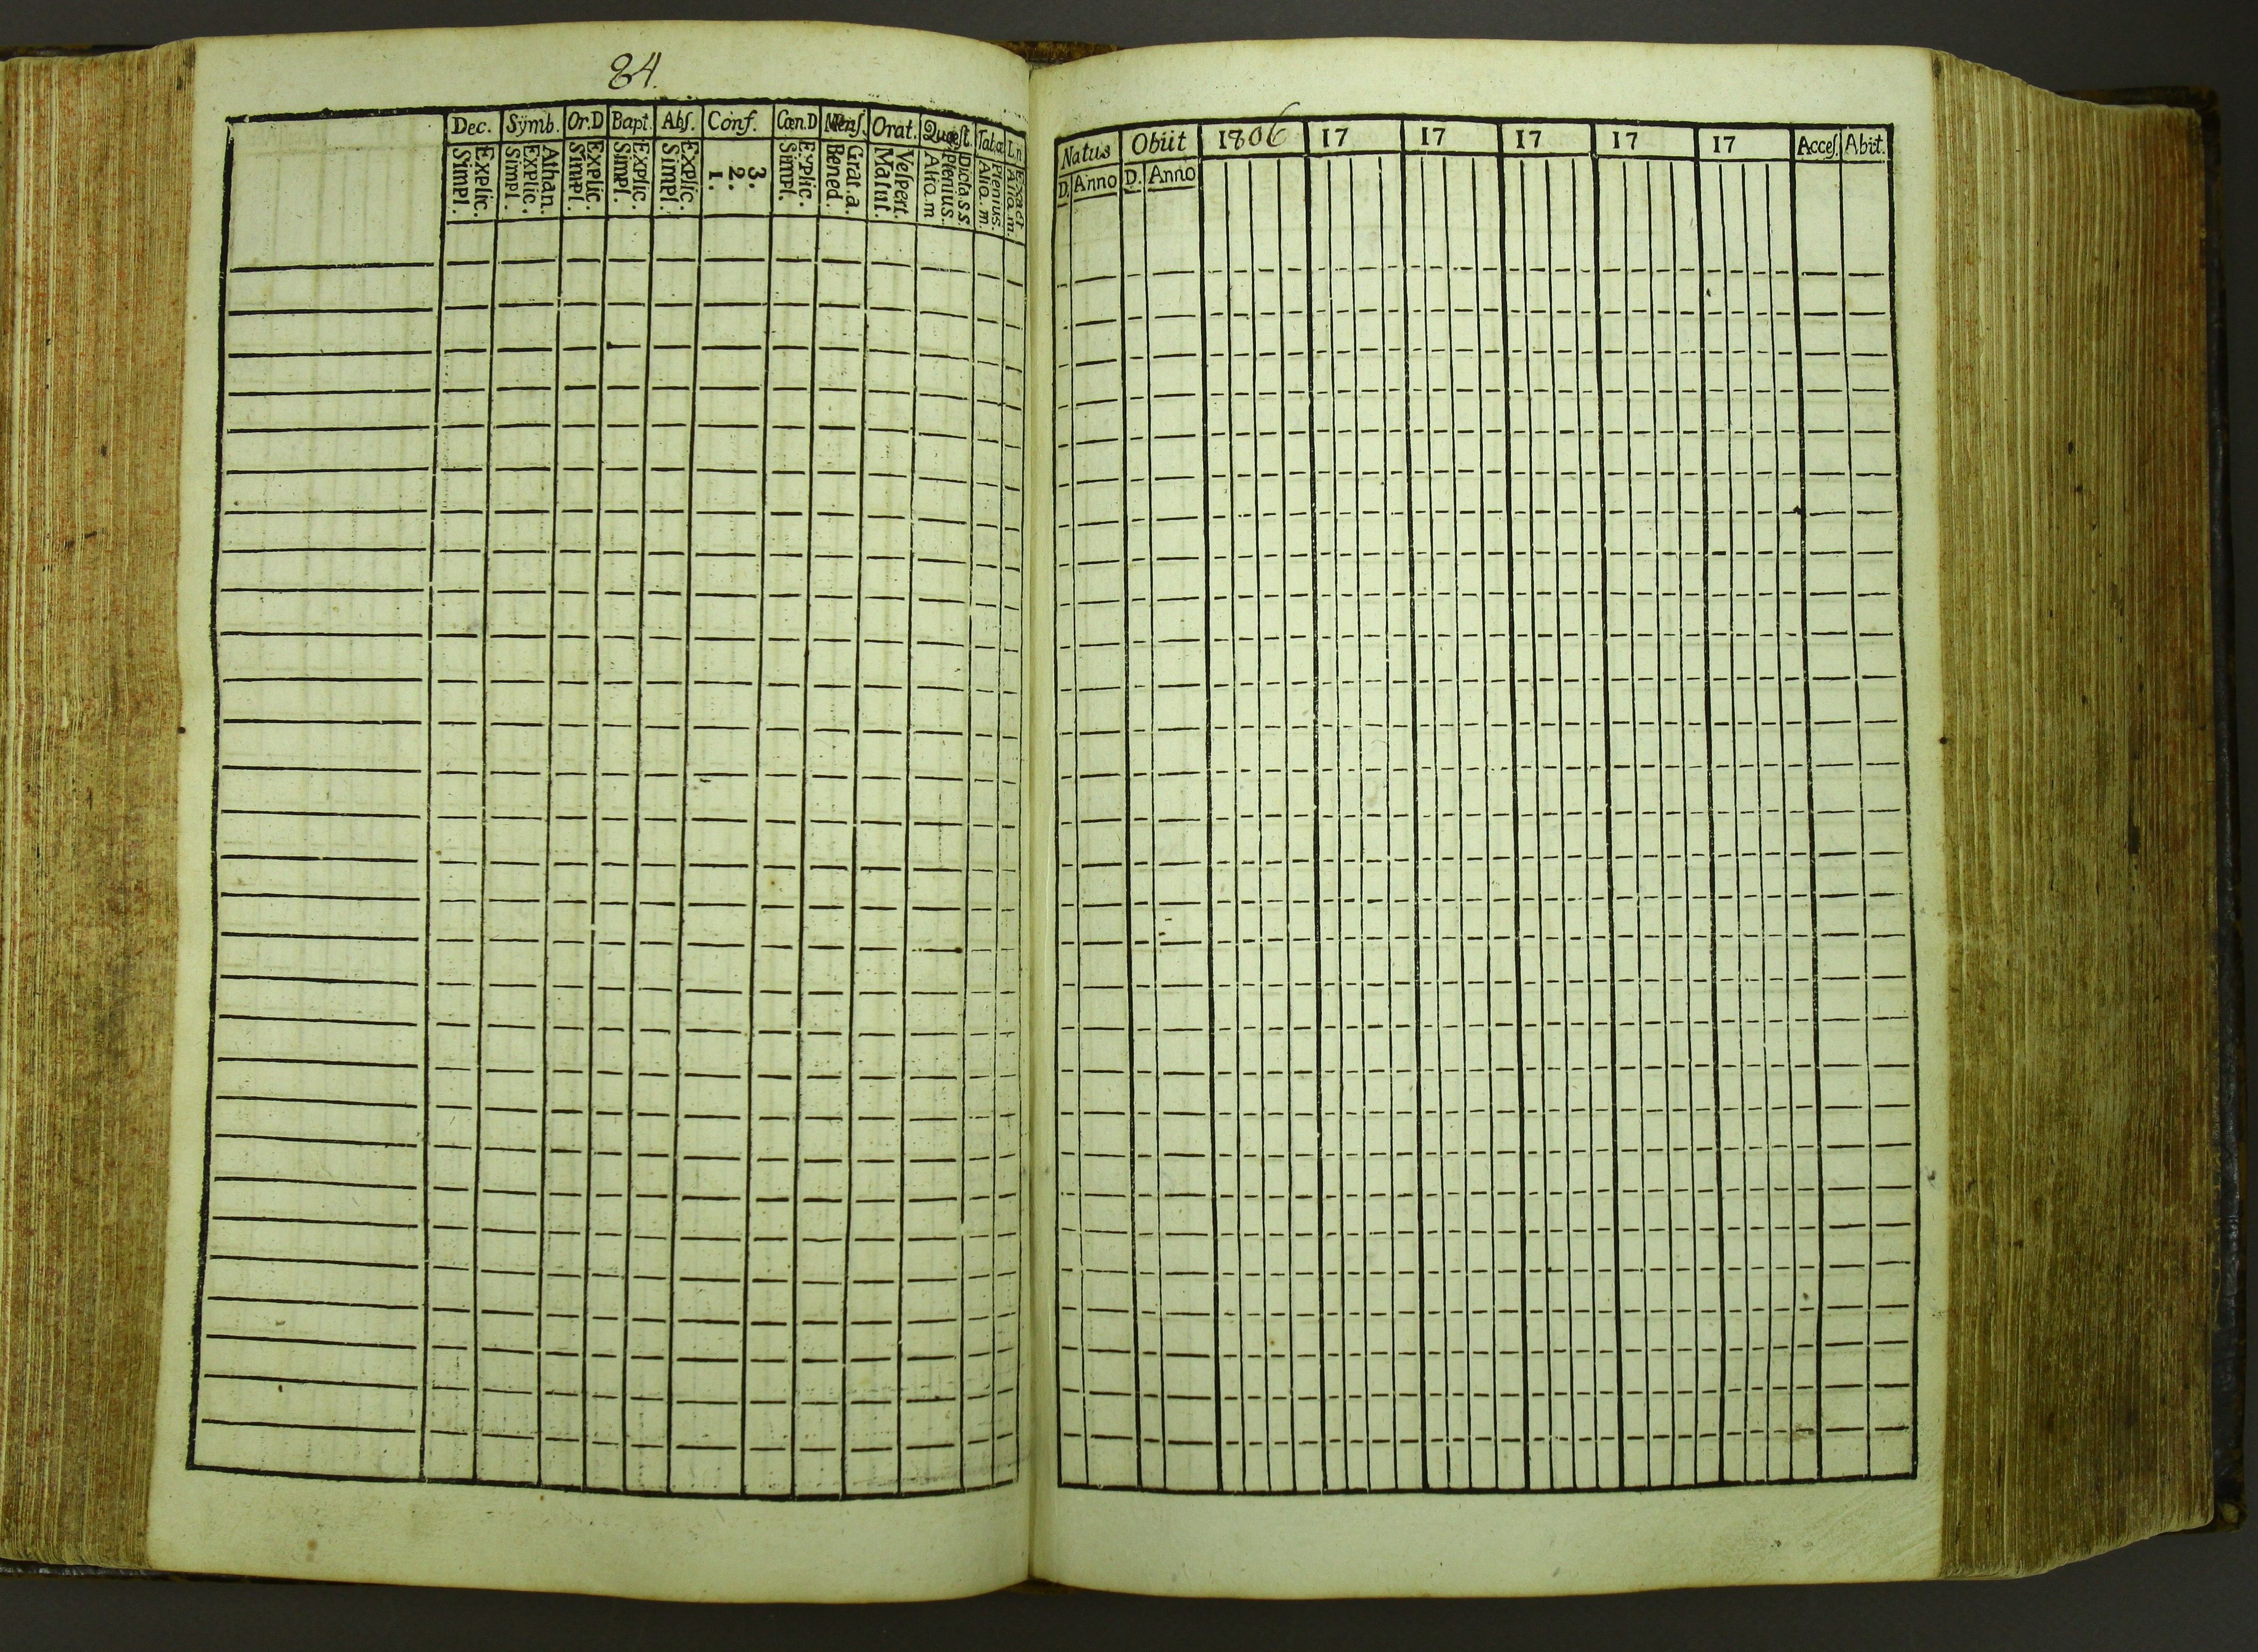 84.
Dec. Sÿmb. Or.D Bapt. Abſ. Conf. Cœn.D Menſ. Orat. Quæſt. Tab.œ L.n
Explic. Simpl. Athan. Explic. Simpl. Explic. Simpl. Explic. Simpl. Explic. Simpl. 3. 2. 1. Explic. Simpl. Grat.a. Bened. Veſpert. Matut. Dicta.s.s. Plenius. Alio.m Plenius. Alio.m. Exact Alio.m.
Natus Obiit 1806 17 17 17 17 17 Acceſ. Abit.
D. Anno D. Anno